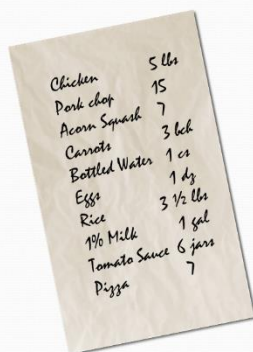 Chicken 5 lbs
Pork chop 15
Acorn Squash 7
Carrots 3 bch
Bottled Water 1 cs
Eggs 1 dz
Rice 3 ½ lbs
1% Milk 1 gal
Tomato Sauce 6 jars
Pizza 7